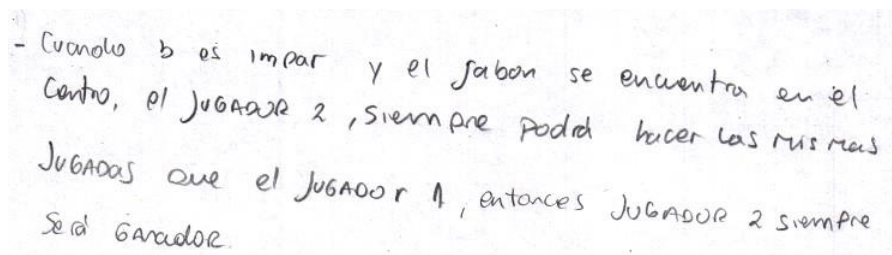 - Cuando b es impar y el Jabon se encuentra en el
Centro, el JUGADOR 2, siempre podrá hacer las mismas
JUGADAS que el JUGADOr 1, entonces JUGADOR 2 siempre
Será GANADOR.